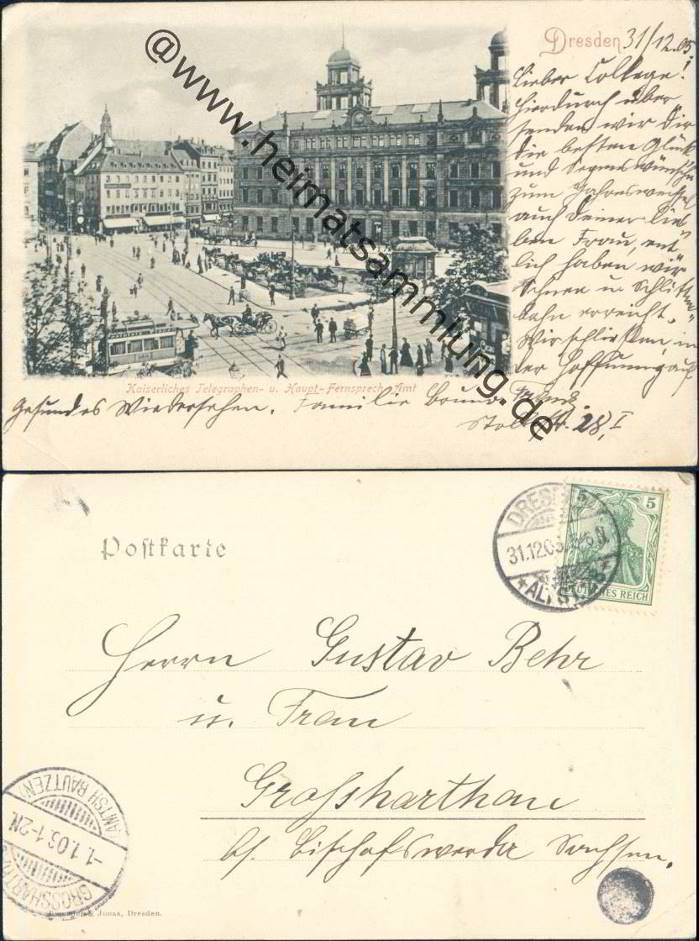 Dresden 31/12.05.
Lieber College!
Hierdurch über
senden wir Dir
die besten Glück
und Segenswünsche
zum Jahreswechsel
auch Deiner lie-
ben Frau, end
lich haben wir
Schnee u. Schlitt
bahn erreicht,
Wir schließen in
der Hoffnung auf
Kaiserliches Telegraphen- u. Haupt-Fernsprech-Amt
Gesundes Wiedersehen. Familie Bruno
28, I
@www.heimatsammlung.de
Postkarte
DRESDEN
31.12.05
ALTST.
5
DEUTSCHES REICH
Herrn Gustav Behr
u. Frau
Grossharthau
bf. Bischofswerda Sachsen.
GROSSHARTHAU
-1.1.06.1-2N.
AMTSH BAUTZEN
& Jonas, Dresden.